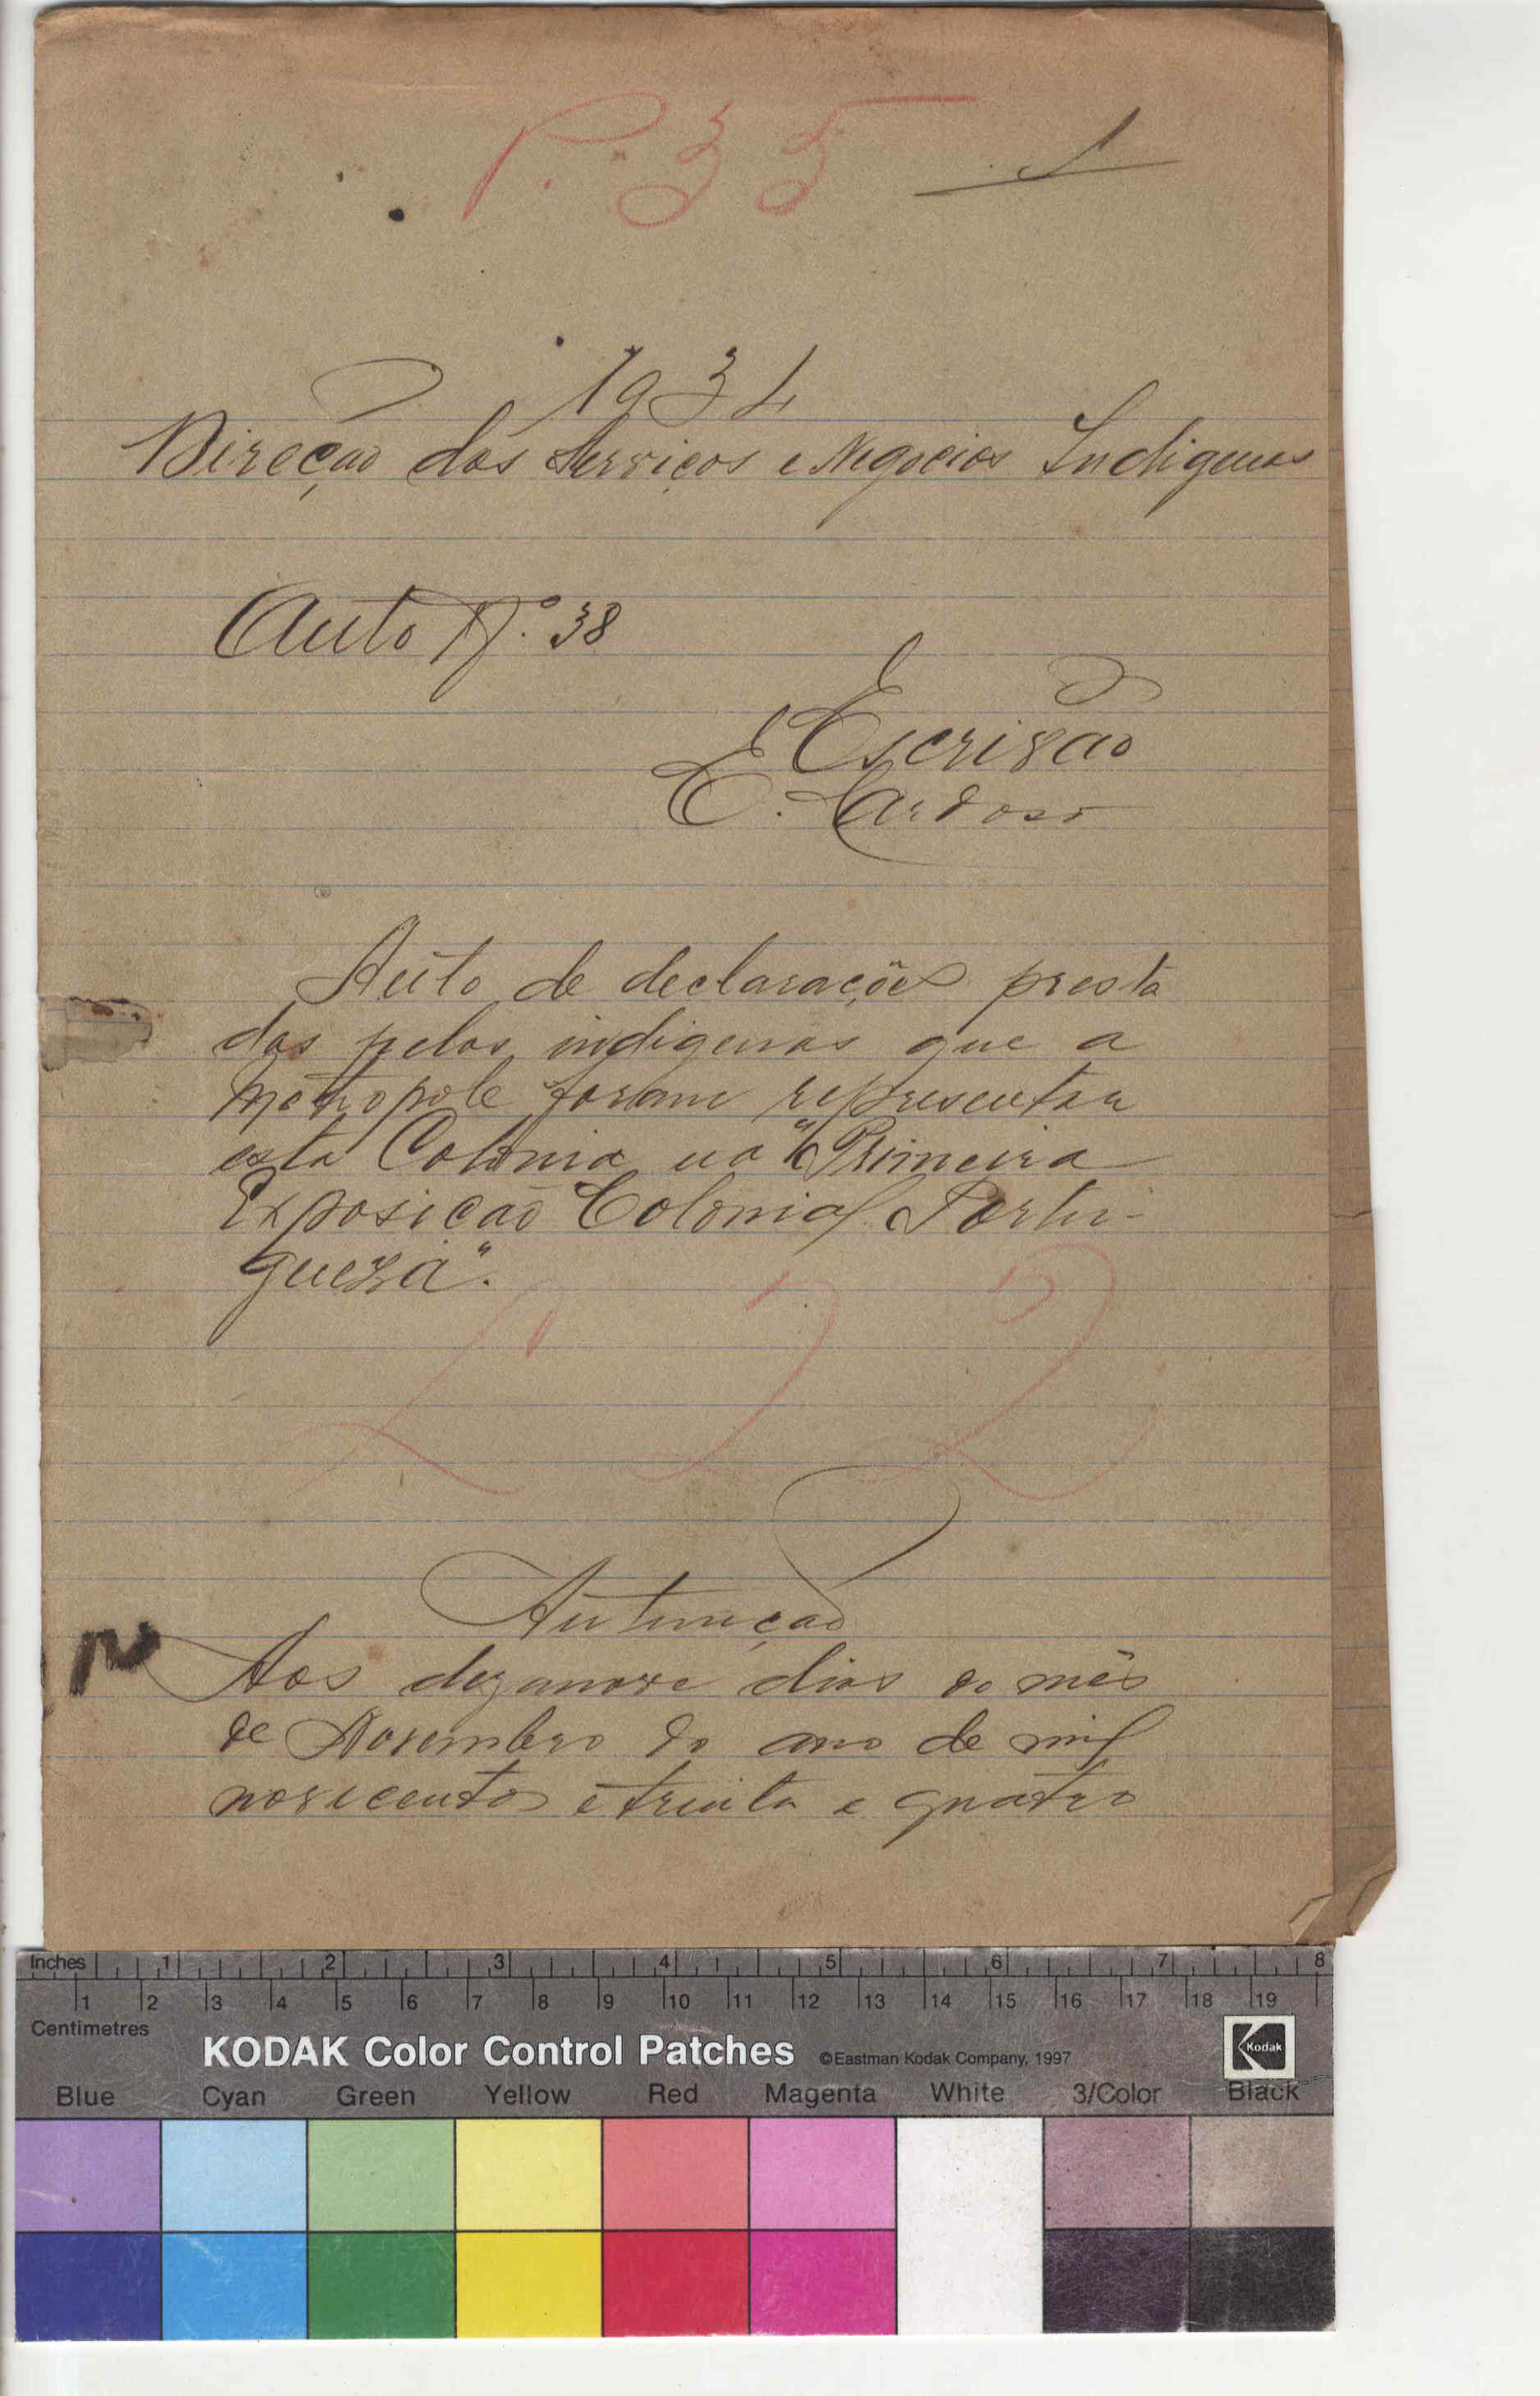 P. 35
1
1934
Direção dos Serviços e Negocios Indigenas
Auto N.º 38
Escrivão
E. Cardoso
Auto de declarações presta
das pelos indigenas que a
Metropole foram representar
esta Colonia na "Primeira
Exposicão Colonial Portu-
gueza".
Autuação
Aos dezanove dias do mês
de Novembro do ano de mil
novecentos e trinta e quatro
Inches 1 2 3 4 5 6 7 8
1 2 3 4 5 6 7 8 9 10 11 12 13 14 15 16 17 18 19
Centimetres
KODAK Color Control Patches ©Eastman Kodak Company, 1997 Kodak
Blue Cyan Green Yellow Red Magenta White 3/Color Black